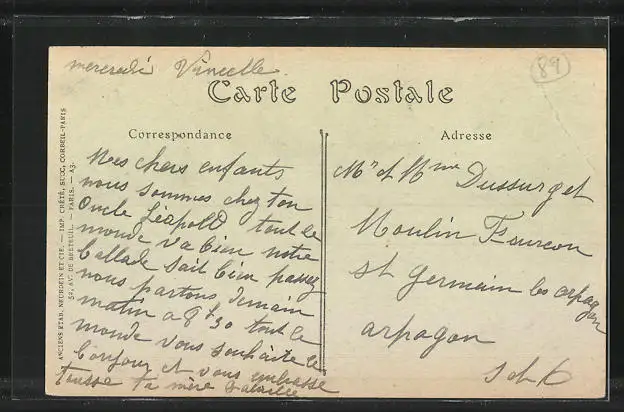 mercredi Vincelle
89
Carte Postale
Correspondance
Mes chers enfants
nous sommes chez ton
Oncle Léopold tout le
monde va bien notre
ballade sait bien passez
nous partons demain
matin a 8h30 tout le
monde vous souhaite le
bonjour et vous embrasse
tousse ta mère
Adresse
Mr et Mme Dussurget
Moulin Fourcon
St Germain les arpagon
arpagon
S et O
ANCIENS ETAB. NEURDEIN ET CIE. — IMP. CRÉTÉ, SUCC. CORBEIL-PARIS
52, AV. DE BRETEUIL. — PARIS. — A3.